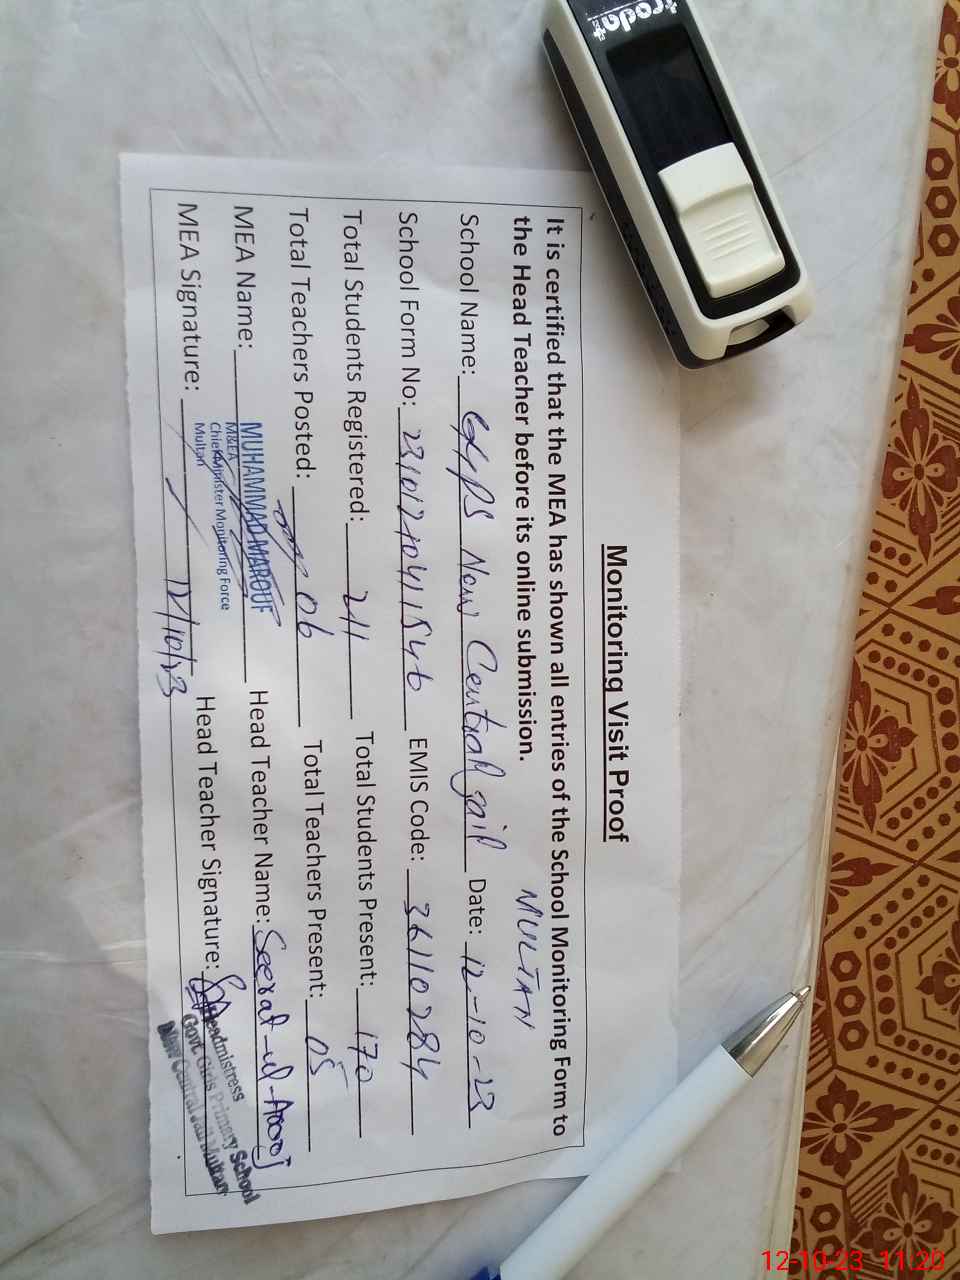 Monitoring Visit Proof
It is certified that the MEA has shown all entries of the School Monitoring Form to
the Head Teacher before its online submission.
MULTAN
School Name: GGPS New Central Jail Date: 12-10-23
School Form No: 23101210411546 EMIS Code: 36110284
Total Students Registered: 211 Total Students Present: 170
Total Teachers Posted: 06 Total Teachers Present: 05
MEA Name: MUHAMMAD MAROUF Head Teacher Name: Seerat-ul-Arooj
M&EA
Chief Minister Monitoring Force
Multan
MEA Signature: 12/10/23 Head Teacher Signature:
Headmistress
Govt. Girls Primary School
New Central Jail Multan
roda
12-10-23 11:20